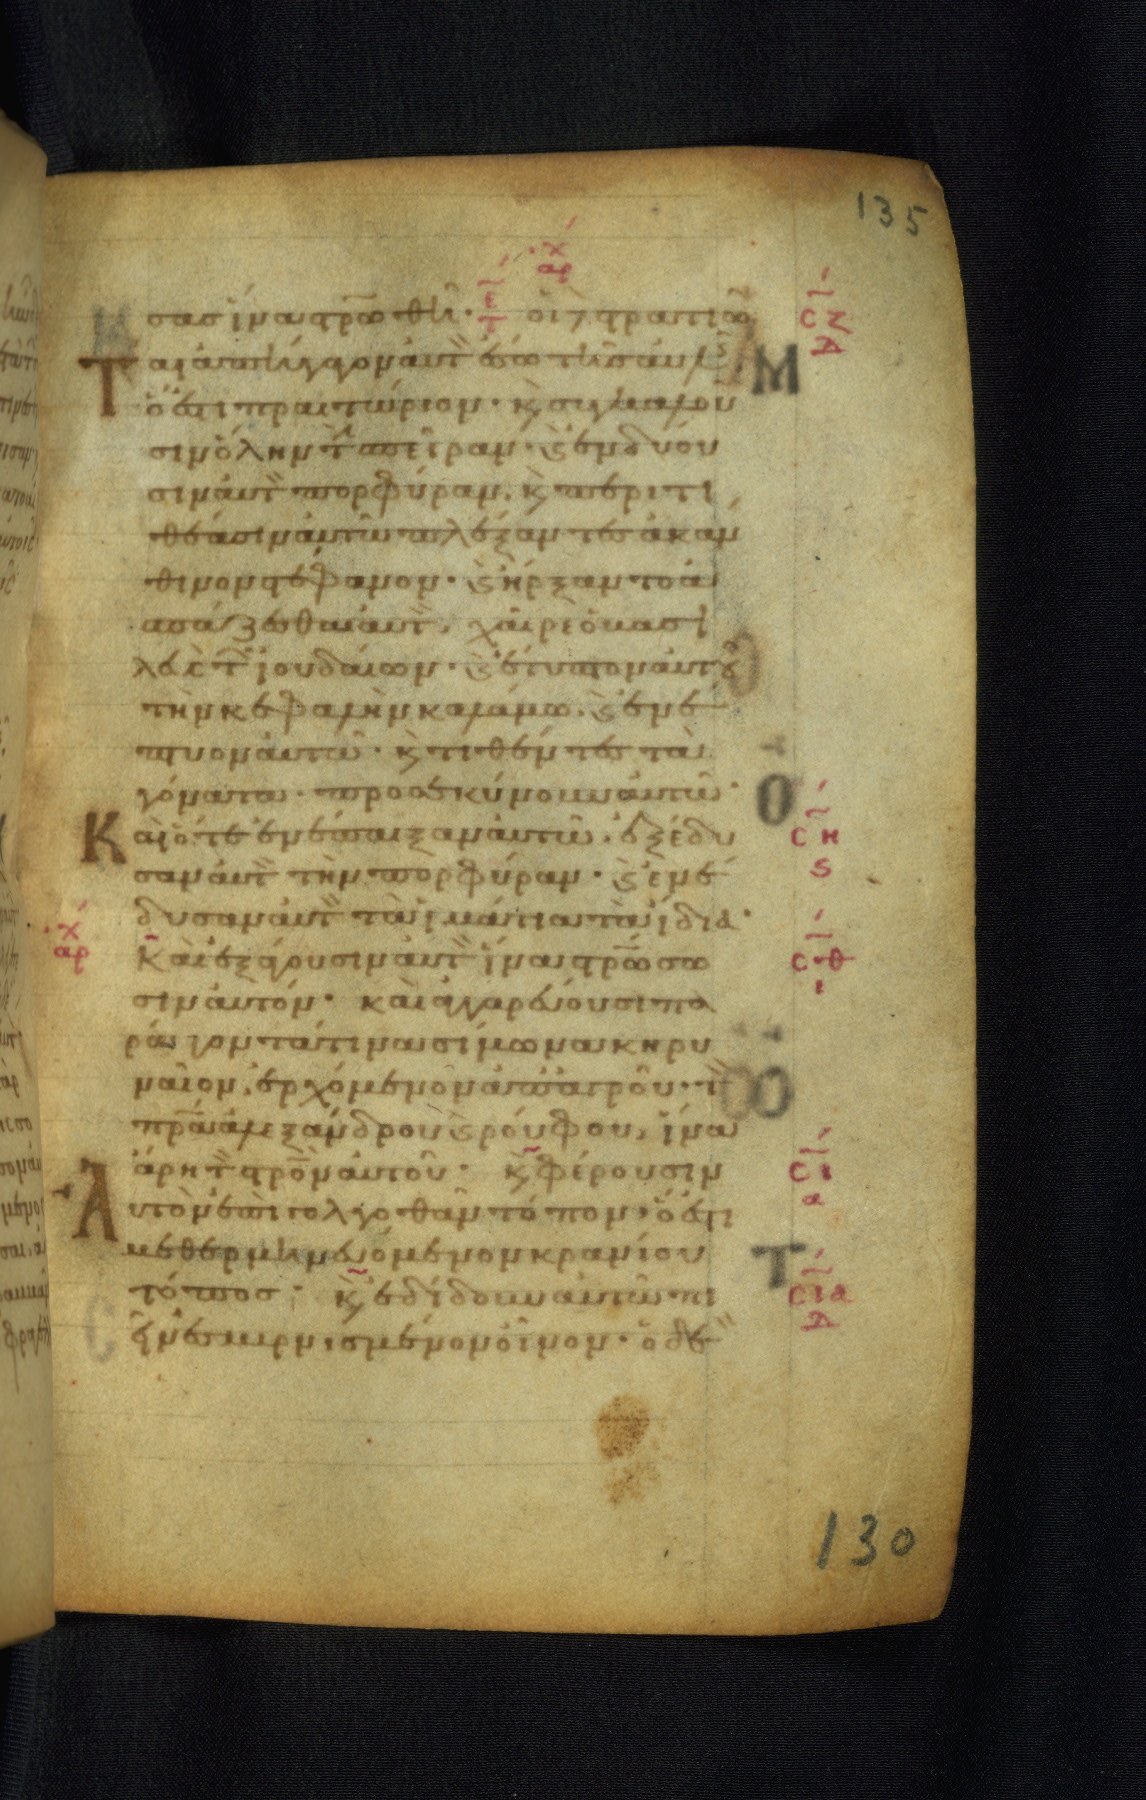 135
σασ ἵνα στρω̅θῆ· οἱ δὲ στρατιῶ
ται ἀπήγαγον αὐτ ἔσω τῆσ αὐλ
ὅ ἐστι πραιτώριον· κ συγκαλοῦ
σιν ὅλην τ σπεῖραν· κ ἐνδύου
σιν αὐτ πορφύραν, κ περιτι
θέασιν αὐτῶ πλέξαντεσ ἀκάν
θινον στέφανον· κ ἤρξαντο ἀ
σπάζεσθαι αὐτ, χαῖρε ὁ βασι
λεὺσ τ ἰουδαίων· κ ἔτυπτον αὐτοῦ
τὴν κεφαλὴν καλάμω, κ ἐνέ
πτυον αὐτῶ· κ τιθέντεσ τὰ
γόνατα προσεκύνουν αὐτῶ·
Καὶ ὅτε ἐνέπαιξαν αὐτῶ, ἐξέδυ
σαν αὐτ τὴν πορφύραν· κ ἐνέ
δυσαν αὐτ τὰ ἱμάτια τὰ ἴδια·
Καὶ ἐξάγουσιν αὐτ ἵνα στρω̅σω
σιν αὐτόν· καὶ ἀγγαρεύουσι πα
ράγοντά τινα σίμωνα κηρυ
ναῖον, ἐρχόμενον ἀπ ἀγροῦ· τ
πρ̅α ἀλεξάνδρου κ ρούφου, ἵνα
ἄρη τ στρο̅ν αὐτοῦ· κ φέρουσιν
Αυτὸν ἐπὶ γολγοθᾶν τόπον, ὅ ἐστι
μεθερμηνευόμενον κρανίου
τόποσ· κ ἐδίδουν αὐτῶ πι
εῖν ἐσμυρνισμένον οἶνον· ὁ δὲ
130